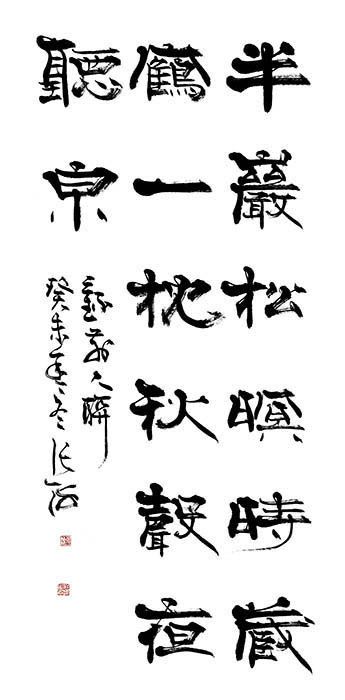 半巖松暝時藏
鶴一枕秋聲夜
聽泉
錄前人聯
癸未年冬張海